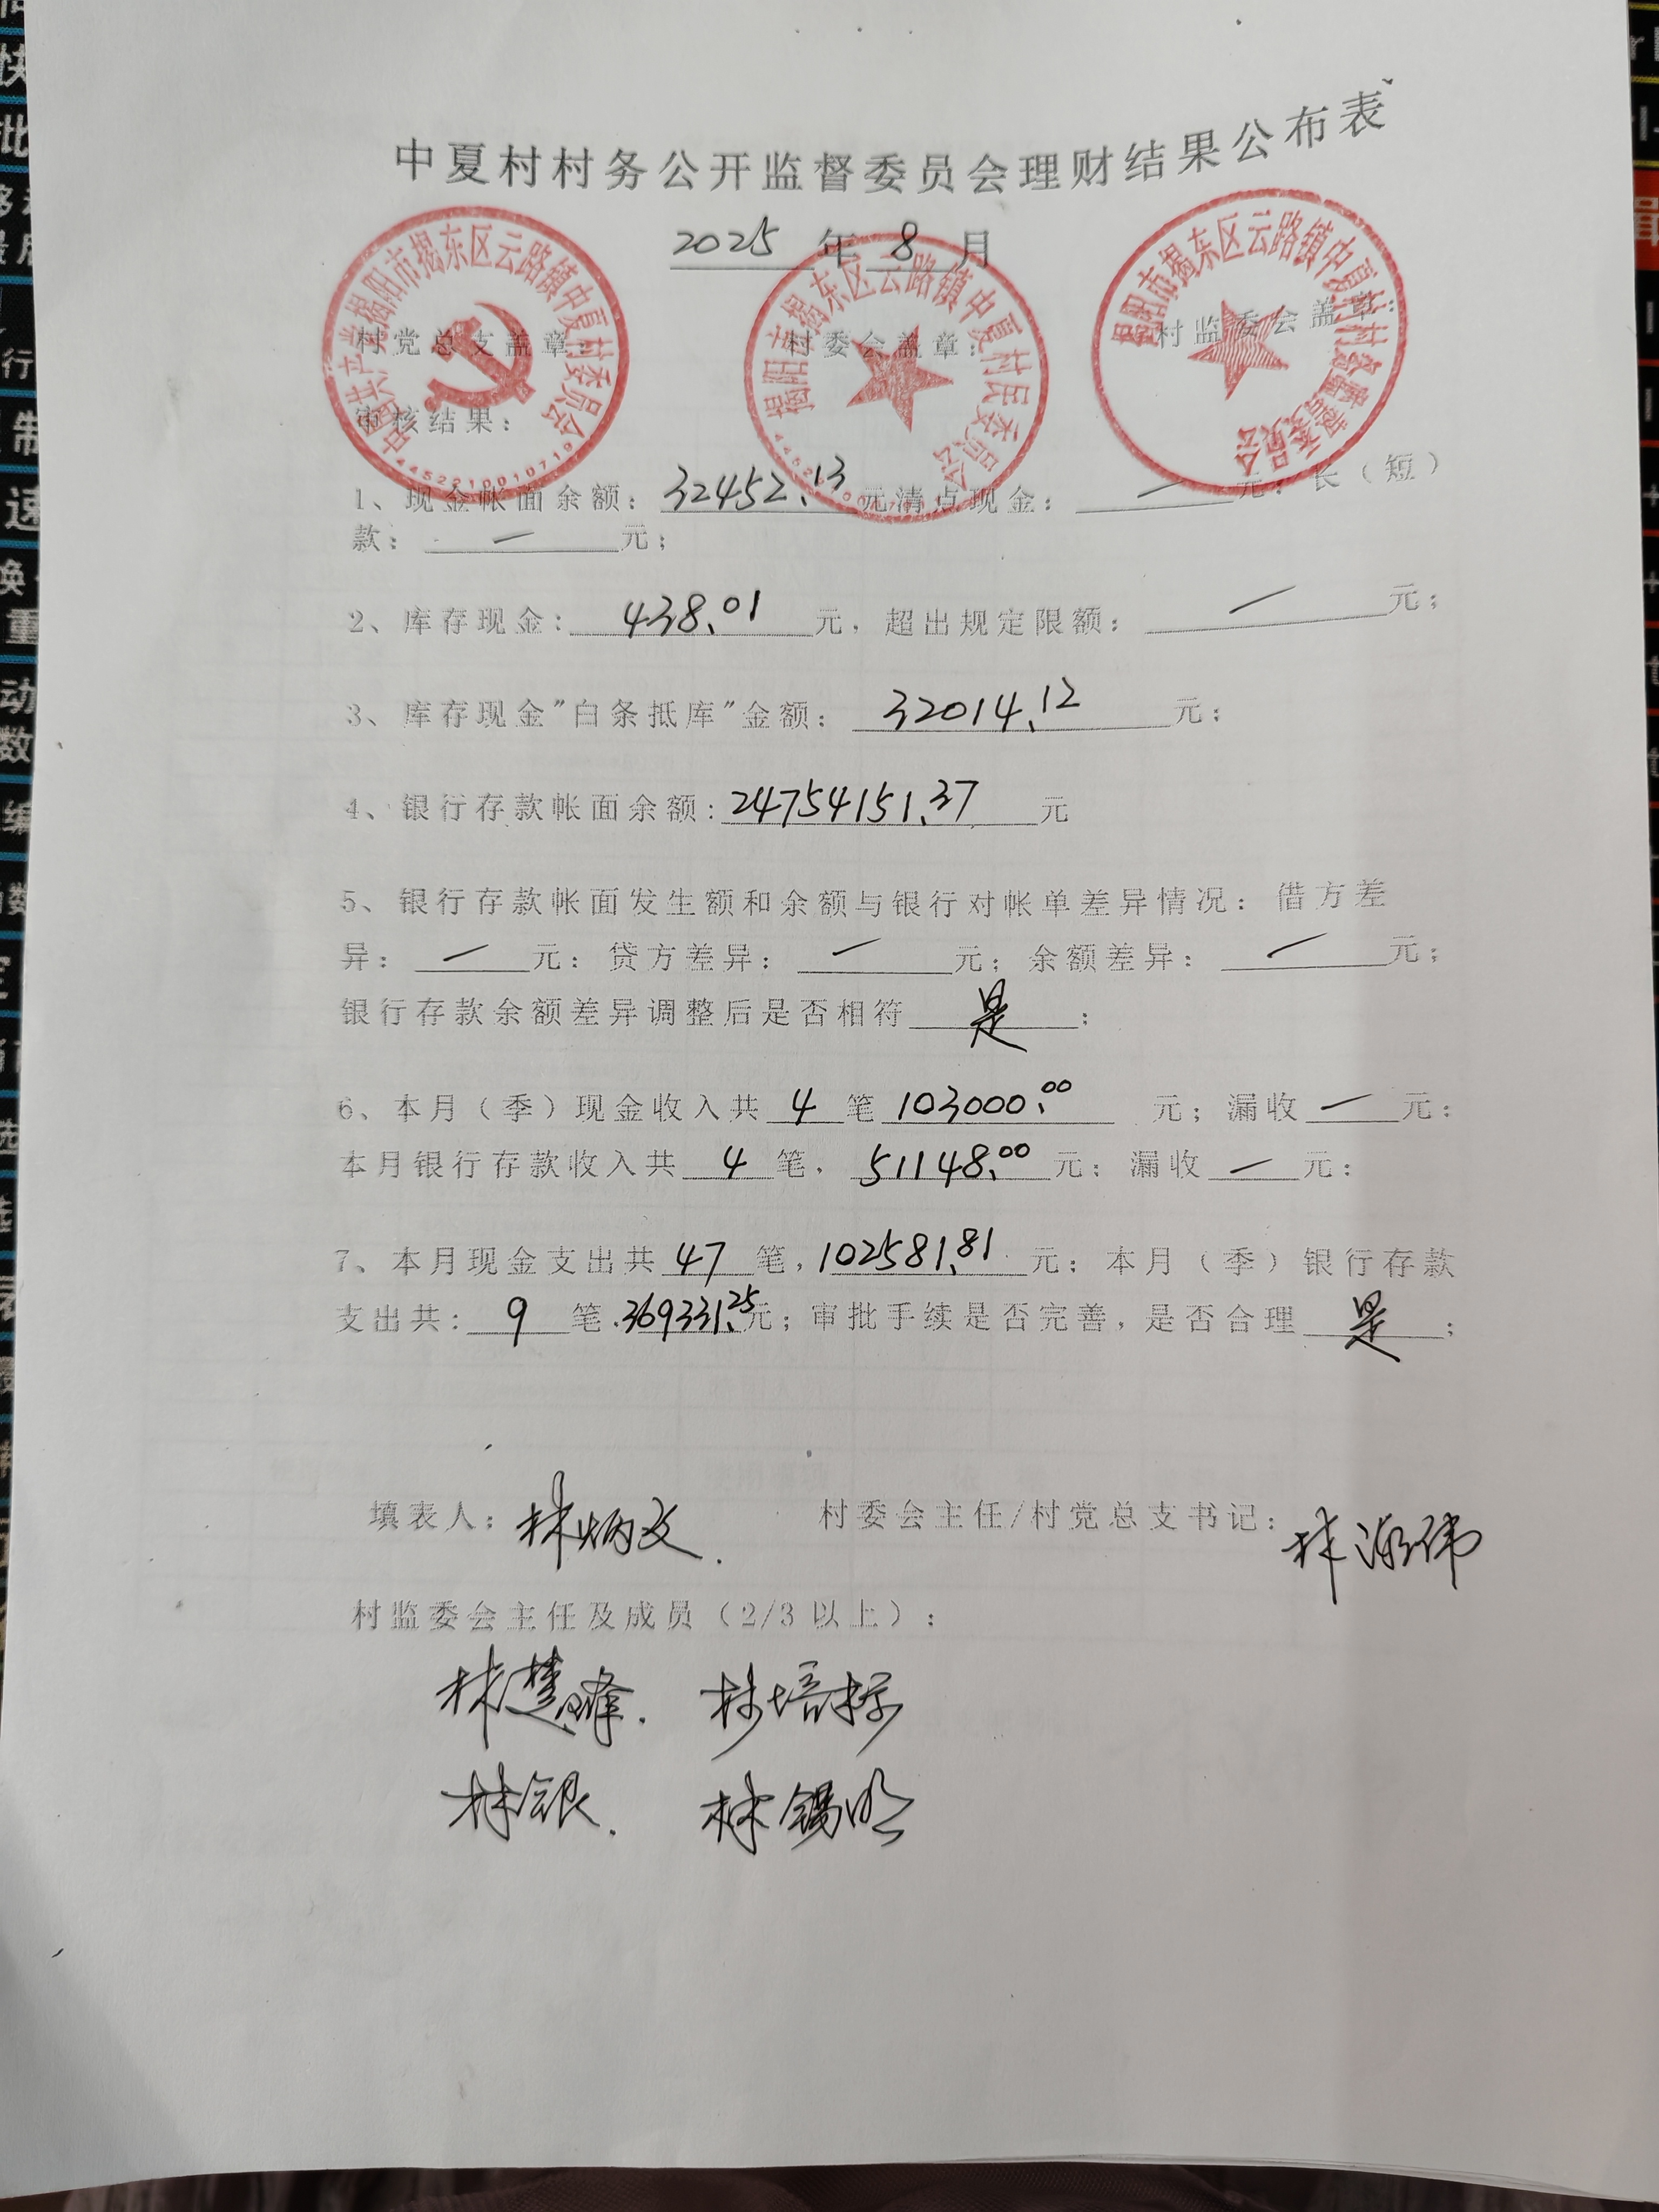 中夏村村务公开监督委员会理财结果公布表
2025 年 8 月
中国共产党揭阳市揭东区云路镇中夏村委员会
4452210010719
揭阳市揭东区云路镇中夏村村民委员会
揭阳市揭东区云路镇中夏村村务监督委员会
村党总支盖章: 村委会盖章: 村监委会盖章:
审核结果:
1、现金帐面余额: 32452.13 元清点现金: — 元: 长(短)
款: — 元;
2、库存现金: 438.01 元, 超出规定限额: — 元;
3、库存现金"白条抵库"金额: 32014.12 元;
4、银行存款帐面余额: 24754151.37 元
5、银行存款帐面发生额和余额与银行对帐单差异情况: 借方差
异: — 元: 贷方差异: — 元; 余额差异: — 元;
银行存款余额差异调整后是否相符 是 ;
6、本月(季)现金收入共 4 笔 103000.00 元; 漏收 — 元:
本月银行存款收入共 4 笔, 51148.00 元; 漏收 — 元:
7、本月现金支出共 47 笔, 102581.81 元; 本月(季)银行存款
支出共: 9 笔. 369331.25 元; 审批手续是否完善, 是否合理 是 ;
填表人: 林炳文. 村委会主任/村党总支书记: 林
村监委会主任及成员(2/3 以上):
林楚峰. 林培标
林银. 林锡明